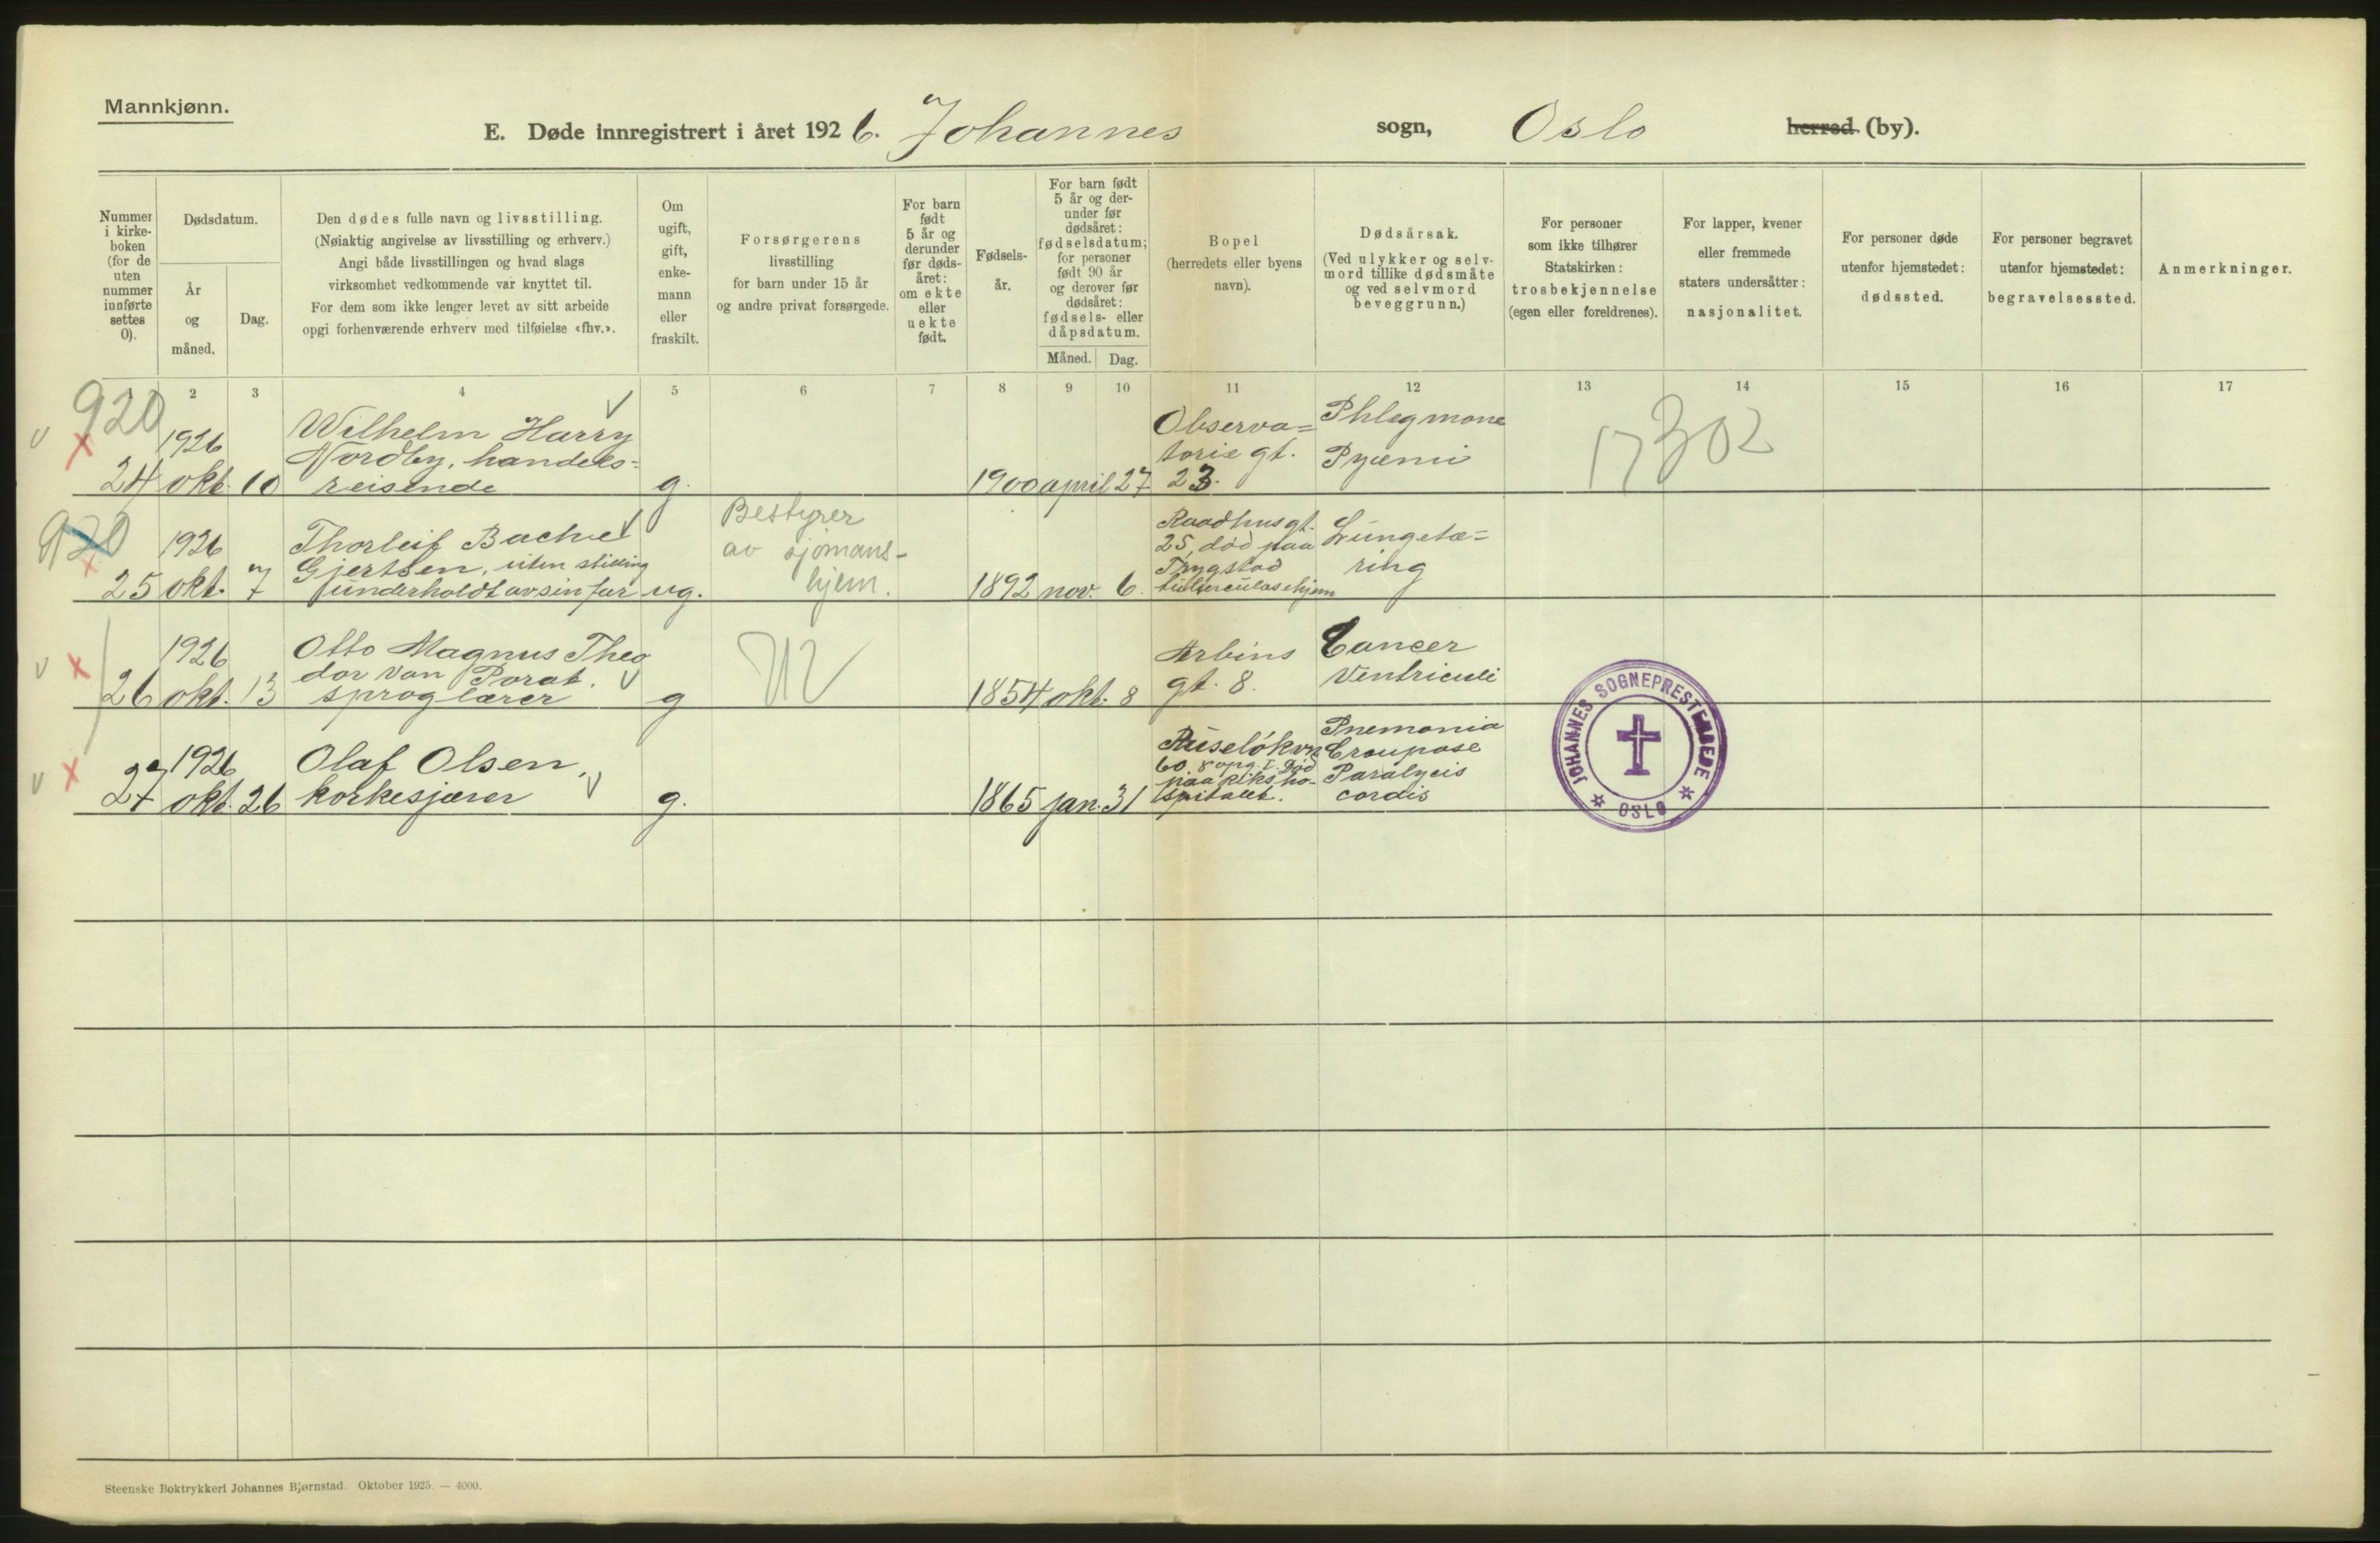 Mannkjønn.
E. Døde innregistrert i året 1926. Johannes sogn, Oslo herred (by).
Nummer
i kirke-
boken
(for de
uten
nummer
innførte
settes
0).
Dødsdatum.
År
og
måned.
Dag.
Den dødes fulle navn og livsstilling.
(Nøiaktig angivelse av livsstilling og erhverv.)
Angi både livsstillingen og hvad slags
virksomhet vedkommende var knyttet til.
For dem som ikke lenger levet av sitt arbeide
opgi forhenværende erhverv med tilføielse «fhv.».
Om
ugift,
gift,
enke-
mann
eller
fraskilt.
Forsørgerens
livsstilling
for barn under 15 år
og andre privat forsørgede.
For barn
født
5 år og
derunder
før døds-
året:
om ekte
eller
uekte
født.
Fødsels-
år.
For barn født
5 år og der-
under før
dødsåret:
fødselsdatum;
for personer
født 90 år
og derover før
dødsåret:
fødsels- eller
dåpsdatum.
Måned. Dag.
Bopel
(herredets eller byens
navn).
Dødsårsak.
(Ved ulykker og selv-
mord tillike dødsmåte
og ved selvmord
beveggrunn.)
For personer
som ikke tilhører
Statskirken:
trosbekjennelse
(egen eller foreldrenes).
For lapper, kvener
eller fremmede
staters undersåtter:
nasjonalitet.
For personer døde
utenfor hjemstedet:
dødssted.
For personer begravet
utenfor hjemstedet:
begravelsessted.
Anmerkninger.
1 2 3 4 5 6 7 8 9 10 11 12 13 14 15 16 17
920
24
1926
okt. 10
Wilhelm Harry
Nordby, handels=
reisende
g.
1900 april 27
Observa=
torie gt.
23.
Phlegmone
Pyæmi
17302
920
25
1926
okt. 7
Thorleif Bache
Gjertsen, uten stilling
underholdt av sin far
ug.
Bestyrer
av sjömans-
hjem.
1892 nov. 6.
Raadhusgt.
25, död paa
Trygstad
tuberculosehjem
Lungetæ=
ring
26
1926
okt. 13
Otto Magnus Theo
dor von Porat.
sproglærer
g
1854 okt. 8
Arbins
gt. 8.
Cancer
Ventriculi
27
1926
okt. 26
Olaf Olsen,
korkesjærer
g.
1865 jan. 31
Ruselökvn
60, 8 opg. I. Död
paa Riksho-
spitalet.
Pnemonia
Croupose
Paralycis
cordis
JOHANNES SOGNEPRESTEMBEDE
OSLO
Steenske Boktrykkeri Johannes Bjørnstad. Oktober 1925. — 4000.